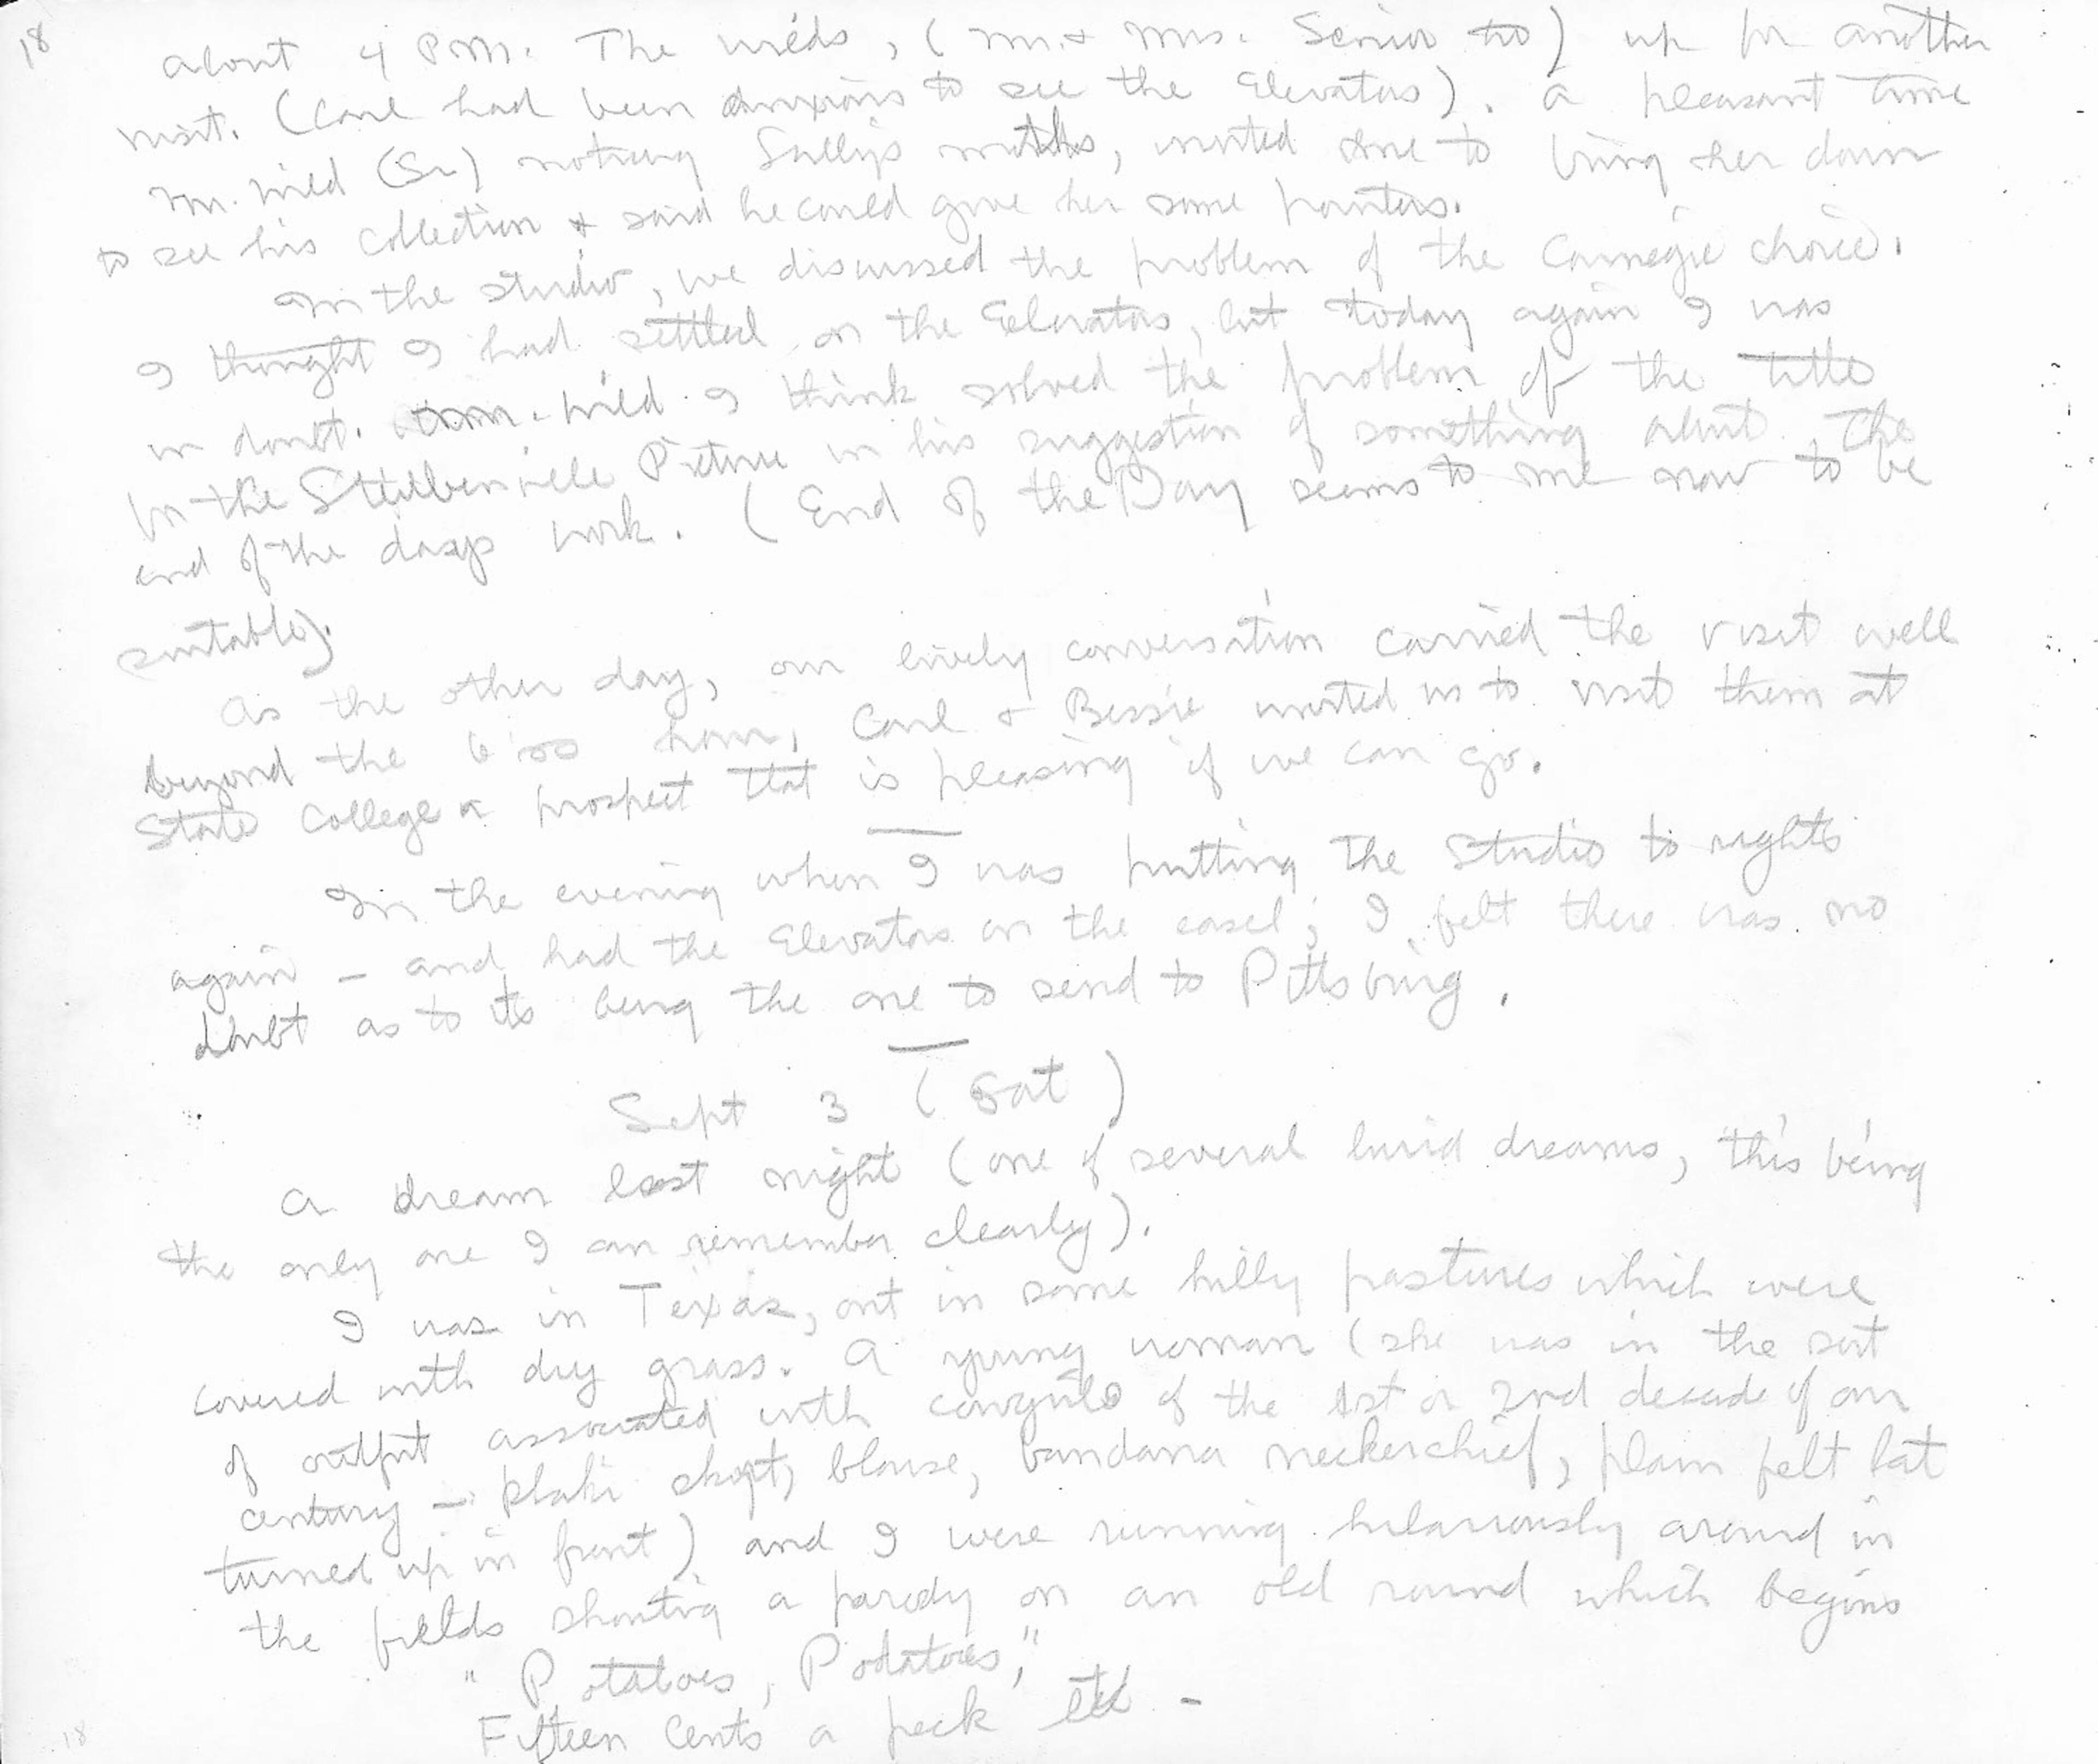 18
about 4 P.M. The Wilds, (Mr. & Mrs. Senior too) up for another
visit. (Carl had been anxious to see the Elevators). A pleasant time
Mr. Wild (Sr) noticing Sally's moths, invited me to bring her down
to see his collection & said he could give her some pointers.
In the studio, we discussed the problem of the Carnegie choice.
I thought I had settled on the Elevators, but today again I was
in doubt. Mr. Wild I think solved the problem of the title
for the Steubenville Picture in his suggestion of something about the
end of the days work. (End of the Day seems to me now to be
suitable).
As the other day, our lively conversation carried the visit well
beyond the 6:00 hour, Carl & Bessie invited us to visit them at
State College a prospect that is pleasing if we can go.
In the evening when I was putting the studio to rights
again – and had the Elevators on the easel; I felt there was no
doubt as to its being the one to send to Pittsburg.
Sept 3 (Sat)
A dream last night (one of several lurid dreams, this being
the only one I can remember clearly).
I was in Texas, out in some hilly pastures which were
covered with dry grass. A young woman (she was in the sort
of outfit associated with cowgirls of the 1st or 2nd decade of our
century – skirt, blouse, bandana neckerchief, plain felt hat
turned up in front) and I were running hilariously around in
the fields shouting a parody on an old round which begins
"Potatoes, Potatoes,"
Fifteen Cents a peck etc –
18